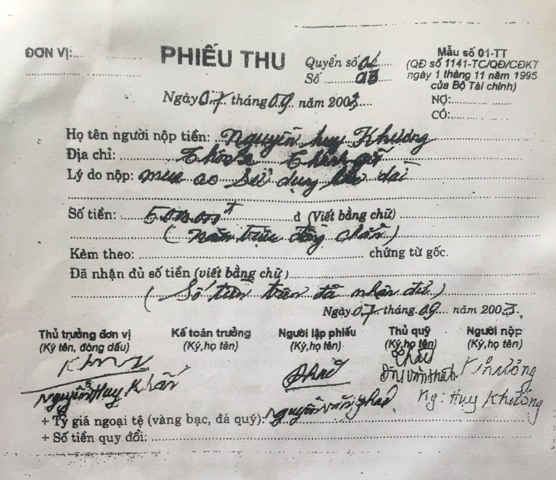 ĐƠN VỊ:
PHIẾU THU
Quyển số 01
Số 03
Mẫu số 01-TT
(QĐ số 1141-TC/QĐ/CĐKT
ngày 1 tháng 11 năm 1995
của Bộ Tài chính)
NỢ:
CÓ:
Ngày 07 tháng 09 năm 2003
Họ tên người nộp tiền: Nguyễn Huy Khương
Địa chỉ:
Lý do nộp: mua ao sử dụng lâu dài
Số tiền: 5000.000đ đ (Viết bằng chữ)
(năm triệu đồng chẵn)
Kèm theo: chứng từ gốc.
Đã nhận đủ số tiền (viết bằng chữ)
(Số tiền trên đã nhận đủ)
Ngày 07 tháng 09 năm 2003
Thủ trưởng đơn vị
(Ký tên, đóng dấu)
Kế toán trưởng
(Ký, họ tên)
Người lập phiếu
(Ký, họ tên)
Thủ quỹ
(Ký, họ tên)
Người nộp
(Ký, họ tên)
Nguyễn Huy Khẩn
Nguyễn Văn
Khương
Ng: Huy Khương
+ Tỷ giá ngoại tệ (vàng bạc, đá quý):
+ Số tiền quy đổi: